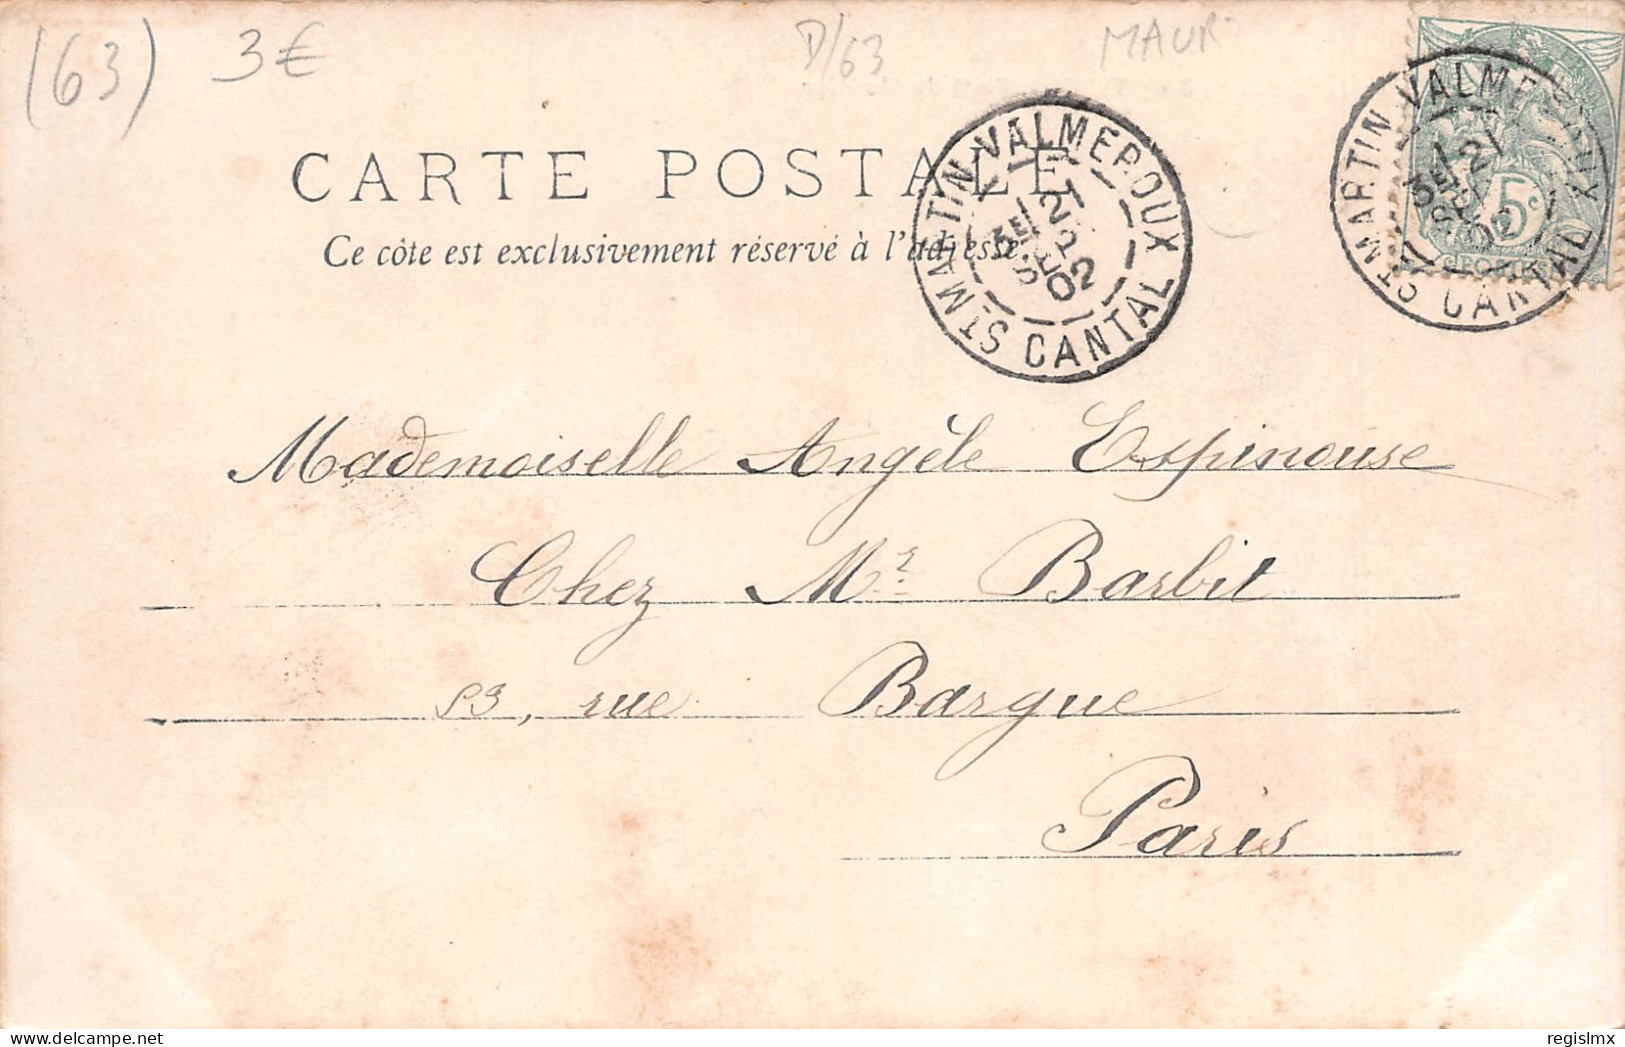 (63) 3€ D/63 MAUR
CARTE POSTALE
Ce côte est exclusivement réservé à l'adresse.
ST MARTIN-VALMEROUX
3E / 21
SEPT
02
CANTAL
ST MARTIN-VALMEROUX
3E / 21
SEPT
02
CANTAL
5c
POSTES
Mademoiselle Angèle Espinouse
Chez Mr. Barbit
53, rue Bargue
Paris
regislmx